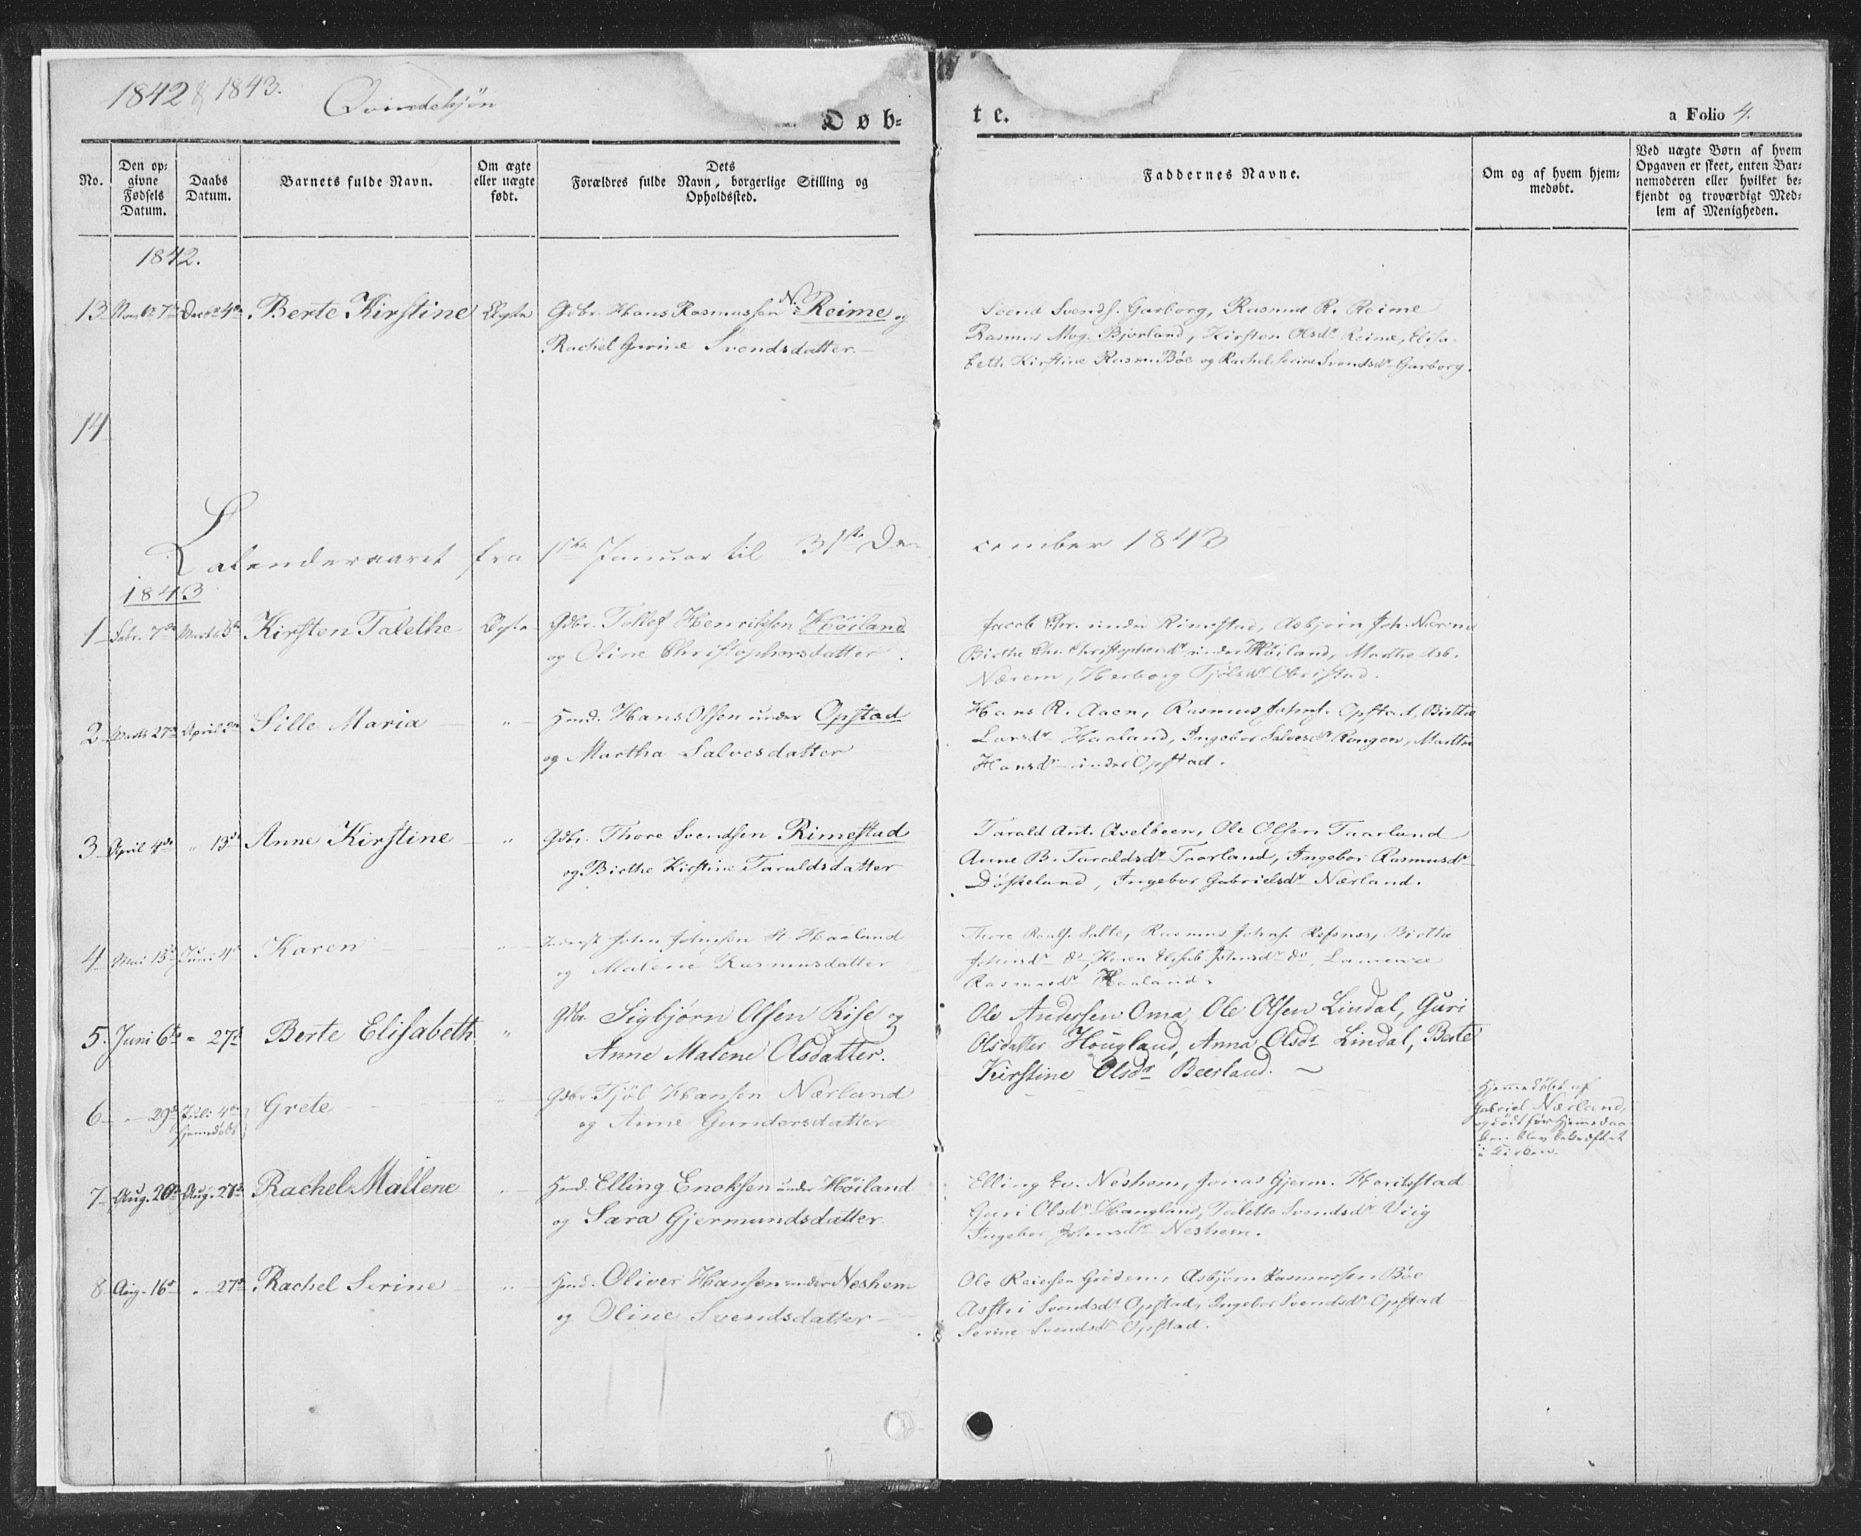 1842 & 1843. Qvindekjøn
Døb-te.
a Folio 4.
No.
Den op-
givne
Fødsels
Datum.
Daabs
Datum.
Barnets fulde Navn.
Om ægte
eller uægte
født.
Dets
Forældres fulde Navn, borgerlige Stilling og
Opholdssted.
Faddernes Navne.
Om og af hvem hjem-
medøbt.
Ved uægte Børn af hvem
Opgaven er skeet, enten Bar-
nemoderen eller hvilket be-
kjendt og troværdigt Med-
lem af Menigheden.
1842.
13 7de 4de Berte Kirstine Ægte Gdbr. Hans Rasmussen N. Reime og
Rachel Gurine Svendsdatter
Svend Svends. Garborg, Rasmus R. Reime
Rasmus Mog. Bjorland, Kirsten Olsdr Reime, Elisa-
beth Kirstine Rasm. Bøe og Rachel Serine Svendsdr Garborg.
14
Kalenderaaret fra 1ste Januar til 31te De-cember 1843
1843
1 Febr. 7de Marts 5te Kirsten Talethe Ægte Gdbr. Tollef Henriksen Høiland
og Oline Christophersdatter
Jacob Chr. under Rimestad, Asbjørn Joh. Nærem
Birthe Chr. Christophersdr under Høiland, Marthe Asb.
Nærem, Herborg Tjølsdr Obrestad.
2 Marts 27de April 2den Sille Maria " Huusmd. Hans Olsen under Opstad
og Martha Salvesdatter
Hans R. Aaen, Rasmus Johns. Opstad, Birthe
Larsdr Haaland, Ingebor Salvesdr Ringen, Marthe
Hansdr under Opstad.
3 April 4de " 13de Anne Kirstine " Gdbr. Thore Svendsen Rimestad
og Birthe Kirstine Taraldsdatter
Tarald Ant. Auelbeen, Ole Olsen Taarland
Anne B. Taraldsdr Taarland, Ingebor Rasmusdr
Døskeland, Ingebor Gabrielsdr Nærland.
4 Mai 15de Juni 4de Karen " John Johnsen St. Haaland
og Malene Rasmusdatter
Thore Salte, Rasmus Johns. Refsnes, Birthe
Johnsdr do, Karen Elisab. Johnsdr do, Laurence
Rasmusdr Haaland.
5. Juni 6te " 27de Berte Elisabeth " Gdbr. Sigbjørn Olsen Rise og
Anne Malene Olsdatter.
Ole Andersen Oma, Ole Olsen Lindal, Guri
Olsdatter Hougland, Anna Olsdr Lindal, Berte
Kirstine Olsdr Beerland.
6 " 29de Juli 4de Grete Gdbr. Tjøl Hansen Nærland
hjemdøbt og Anne Gundersdatter
Hjemmedøbt af
Gabriel Nærland,
og død før Hjemdaa-
ben blev bekræftet
i Kirken.
7 Aug. 20de Aug. 27de Rachel Mallene " Hmd. Elling Enoksen under Høiland
og Sara Gjermundsdatter
Elling Ev. Neshem, Jonas Gjerm. Haritstad
Guri Olsdr Haugland, Talette Svendsdr Viig
Ingebor Johnsdr Neshem.
8 Aug. 16de " 27de Rachel Serine " Hmd. Oliver Hansen under Neshem
og Oline Svendsdatter
Ole Reiersen Grødem, Asbjørn Rasmussen Bøe
Astri Svendsdr Opstad, Ingebor Svendsdr Opstad
Serine Svendsdr Opstad.